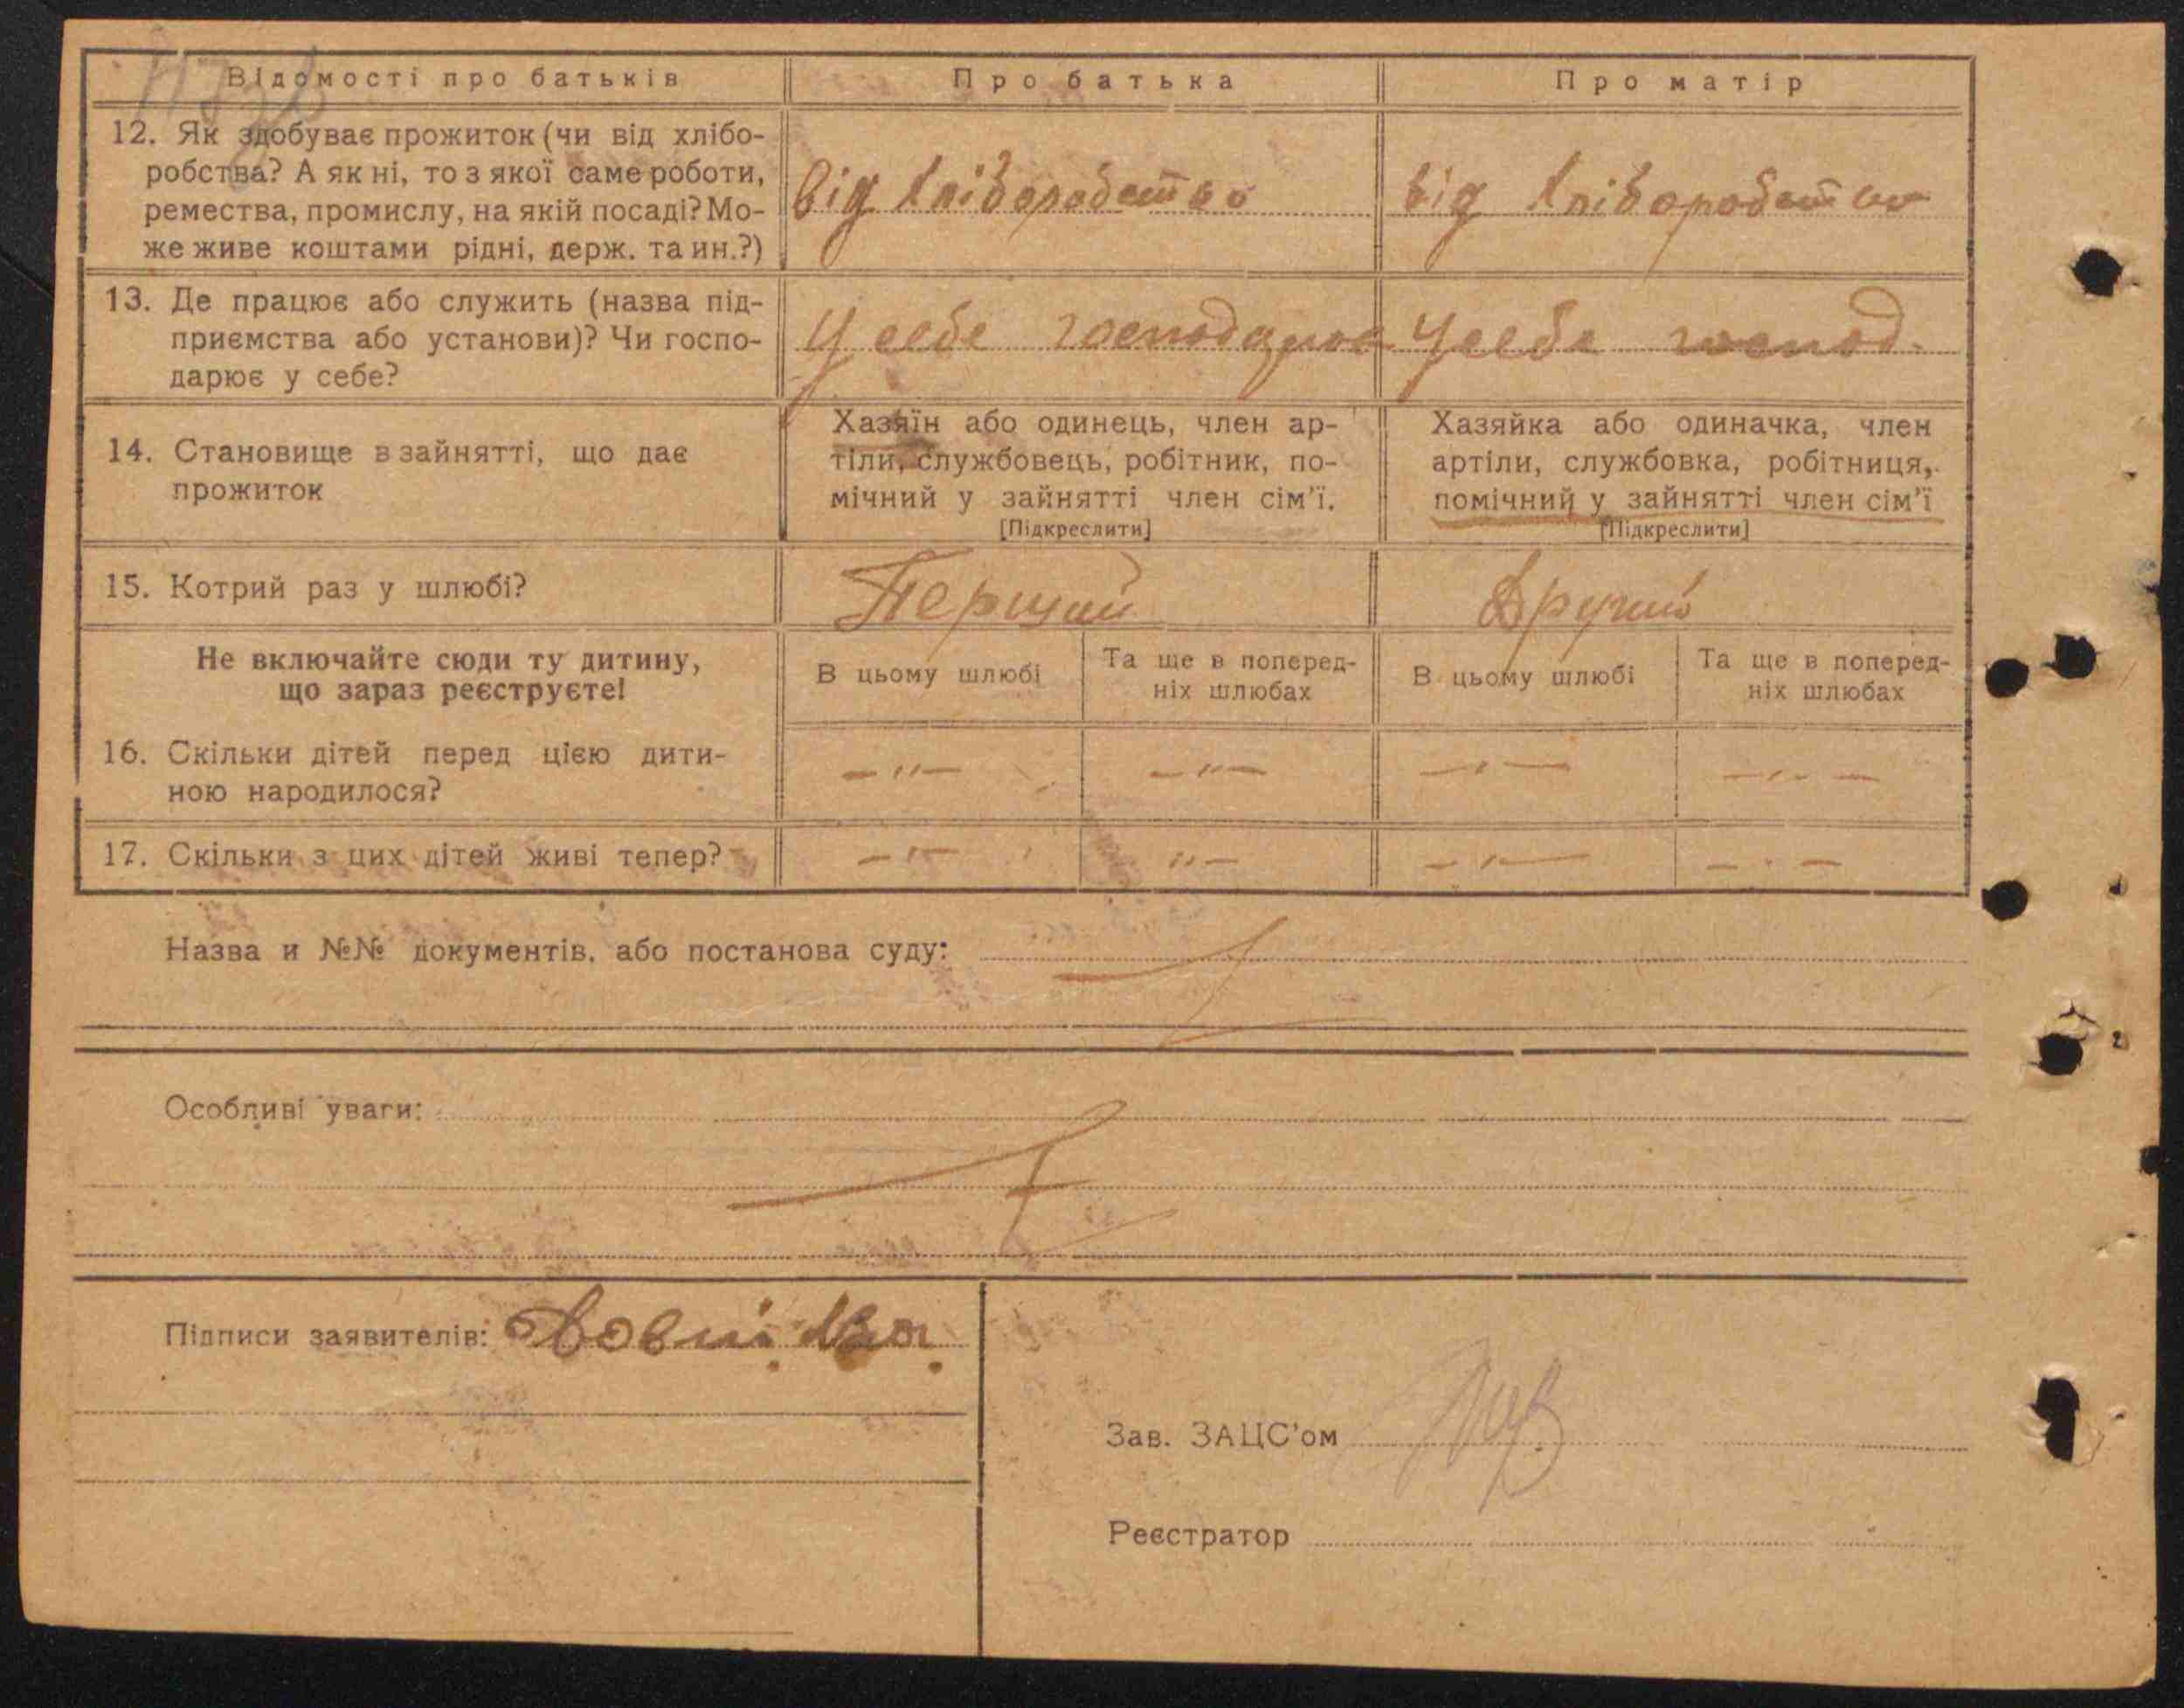 Відомості про батьків
Про батька
Про матір
12. Як здобуває прожиток (чи від хлібо-
робства? А як ні, то з якої саме роботи,
ремества, промислу, на якій посаді? Мо-
же живе коштами рідні, держ. та ин.?)
від хліборобства
від хліборобства
13. Де працює або служить (назва під-
приємства або установи)? Чи госпо-
дарює у себе?
У себе господарює
У себе господ.
14. Становище в зайнятті, що дає
прожиток
Хазяїн або одинець, член ар-
тіли, службовець, робітник, по-
мічний у зайнятті член сім'ї.
[Підкреслити]
Хазяйка або одиначка, член
артіли, службовка, робітниця,
помічний у зайнятті член сім'ї
[Підкреслити]
15. Котрий раз у шлюбі?
Перший
Другий
Не включайте сюди ту дитину,
що зараз реєструєте!
В цьому шлюбі
Та ще в поперед-
ніх шлюбах
В цьому шлюбі
Та ще в поперед-
ніх шлюбах
16. Скільки дітей перед цією дити-
ною народилося?
— " —
— " —
— " —
— " —
17. Скільки з цих дітей живі тепер?
— " —
" —
— " —
— " —
Назва и №№ документів, або постанова суду:
Особливі уваги:
Підписи заявителів:
Зав. ЗАЦС'ом
Реєстратор